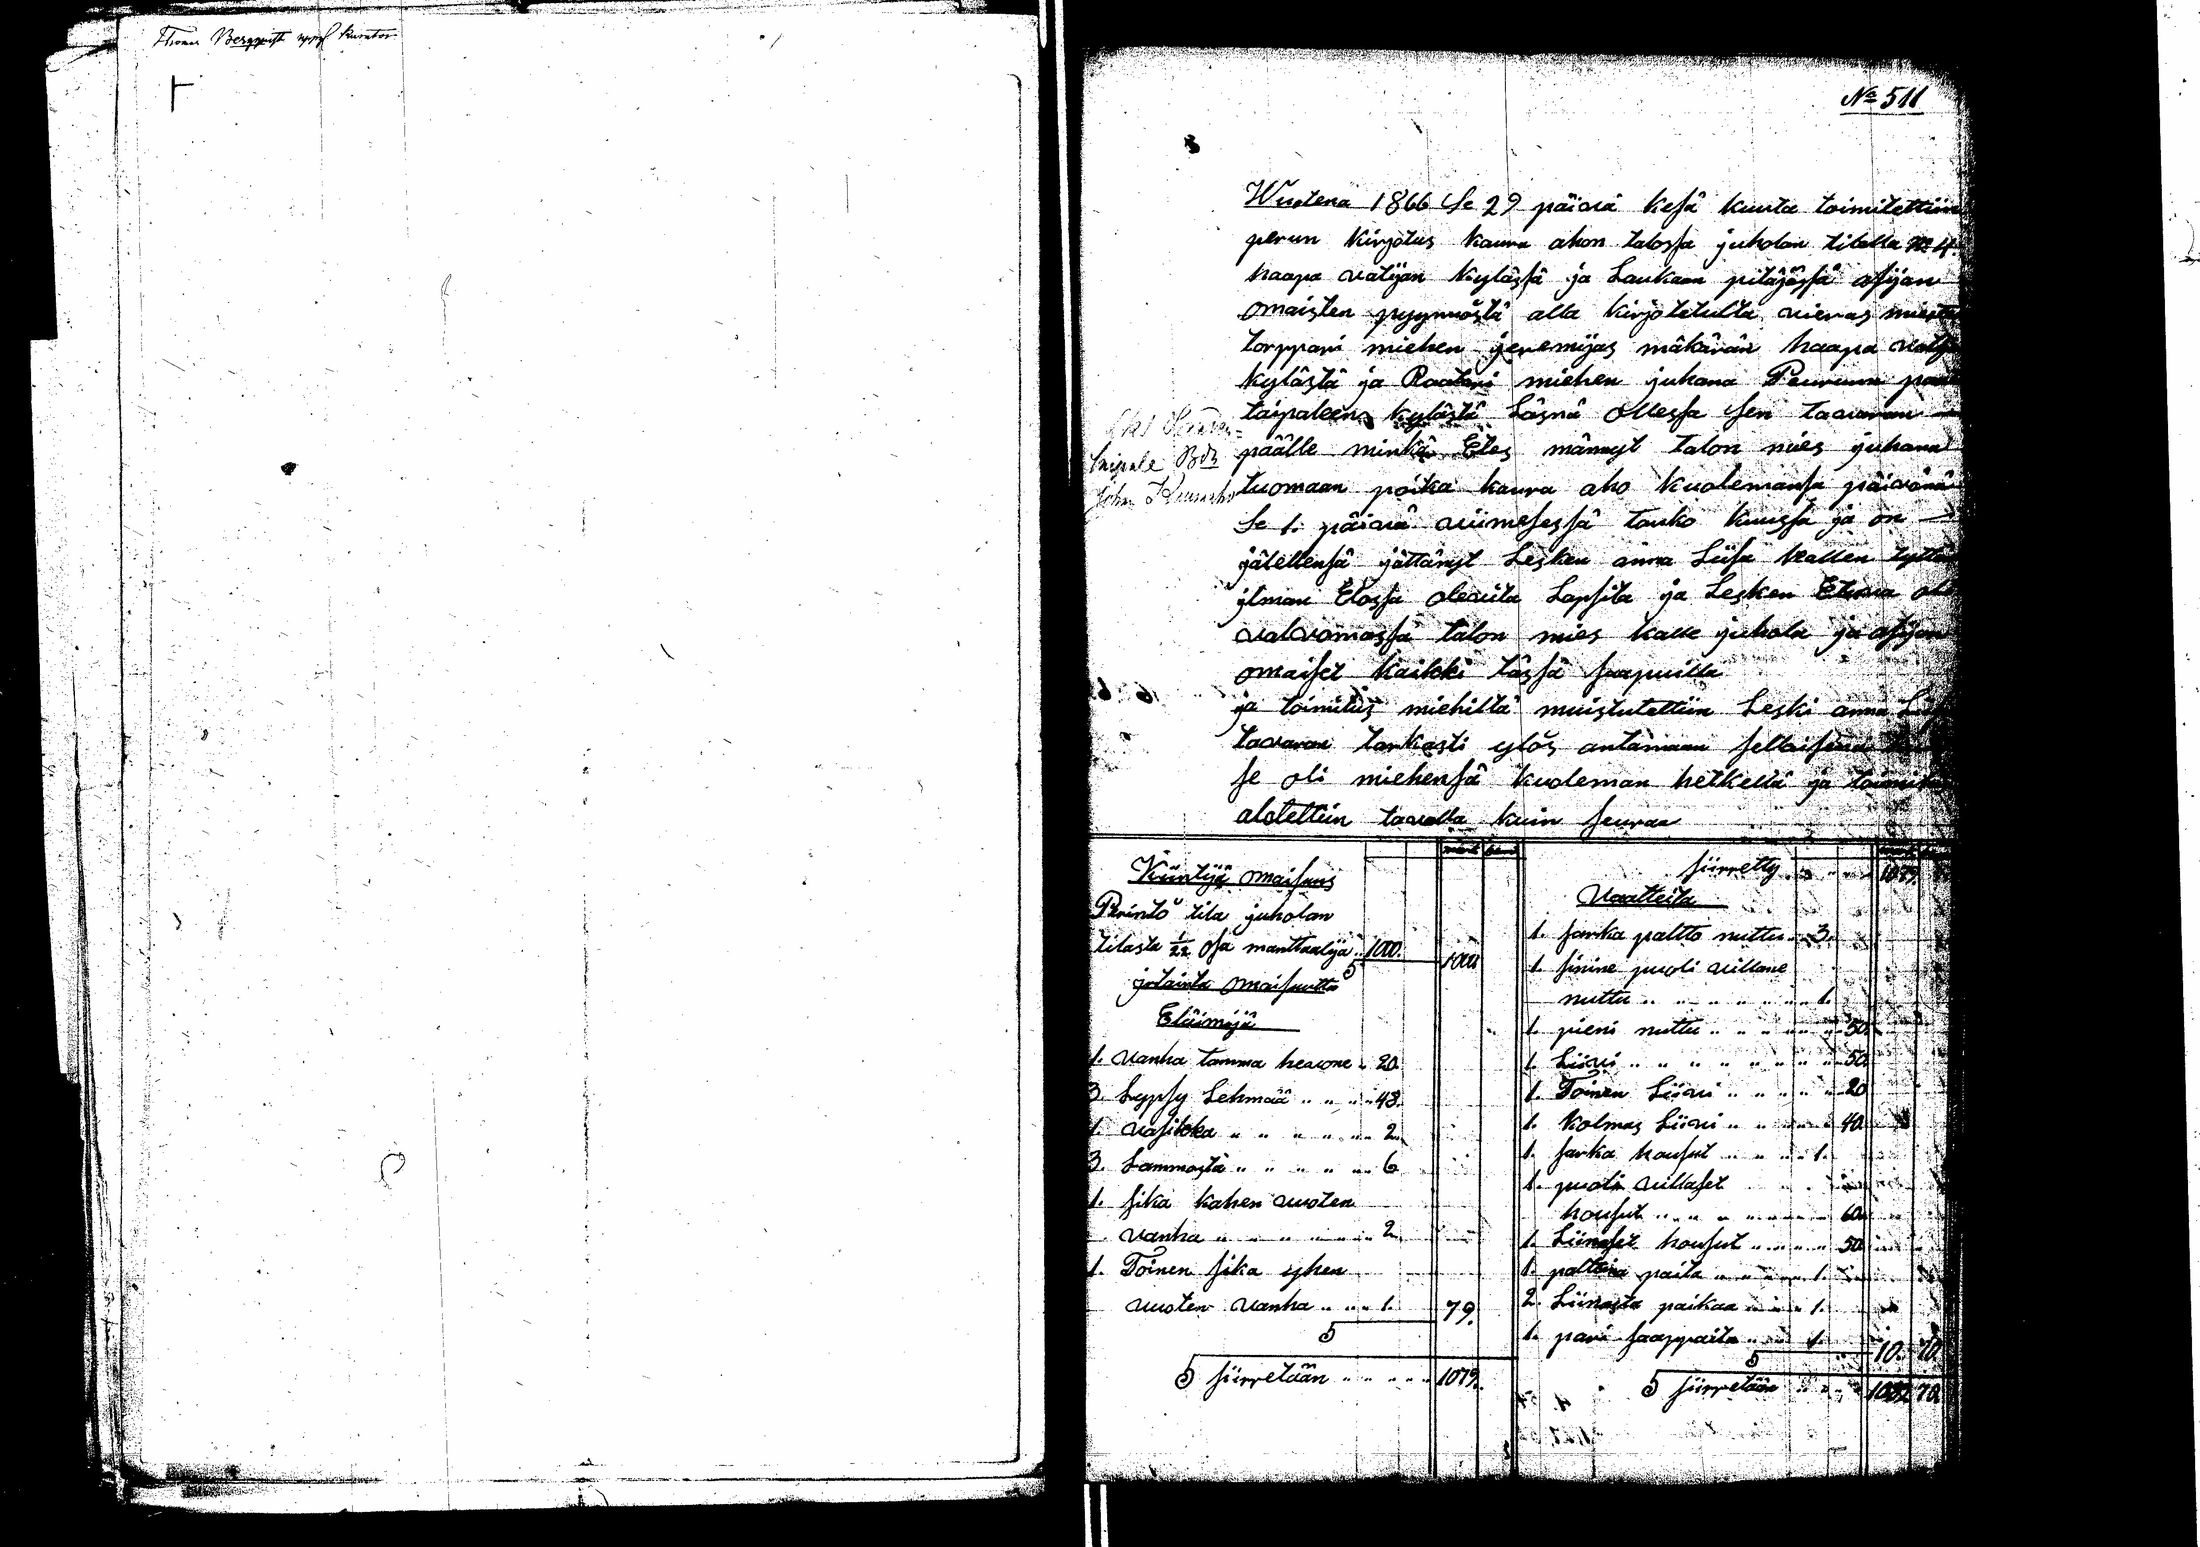 Thomas Bergqvist uppf kurator
№ 511
Wuotena 1866 Se 29 päivä kesä kuuta toimitettiin
perun kirjotus kaura ahon talossa juholan tilalla № 4.
haapa vatijan kylässä ja Laukaan pitäjässä asijan
omaisten pyynnöstä alla kirjotetulta vieras miestä
torppari miehen jeremijas mäkärän haapa
kylästä ja Raatari miehen juhana Peurunn
taipaleen kylästä Läsnä ollessa sen tavaran
päälle minkä Etes männyt talon mies juhana
tuomaan poika kaura aho kuolemansa päivänä
Se 1. päivä viimesessä touko kuussa ja on
jälellensä jättänyt Lesken anna Liisa kallen tyttä
ilman Elossa olevita Lapsita ja Lesken Etuva oli
valvomassa talon mies kalle juhola ja asijan
omaiset kaikki tässä saapuilla
ja toimitus miehiltä muistutettiin Leski anna
tavaran tarkasti ylös antamaan sellaisena
se oli miehensä kuoleman hetkellä ja
alotettiin tavalla kuin seuraa
taipale Bdr
John
Kiintijä omaisuus
Perintö tila juholan
tilasta 1/22 osa manttaalija .. 1000. 1000
5
jrtainta omaisuutta
Eläimijä
1. vanha tamma hevone .. 20.
3. Lypsy Lehmää .. .. .. 48.
1. vasikka .. .. .. .. .. 2.
3. Lammasta .. .. .. .. .. 6.
1. sika kahen vuoten
vanha .. .. .. .. .. .. 2.
1. Toinen sika yhen
vuoten vanha .. .. .. 1. 79.
5
5 siirretään .. .. .. .. 1079.
siirretty .. .. .. 1079.
Vaatteita
1. sarka paltto nuttu .. 3.
1. sinine puoli villane
nuttu .. .. .. .. .. .. .. 1.
1. pieni nuttu .. .. .. .. .. 50.
1. Liivi .. .. .. .. .. .. .. 50.
1. Toinen Liivi .. .. .. .. 20
1. kolmas Liivi .. .. .. .. 40.
1. sarka housut .. .. .. .. 1.
1. puoli villaset
housut .. .. .. .. .. .. 60.
1. Liinaset housut .. .. .. .. 50.
1. palttina paita .. .. .. .. 1.
2. Liinasta paikaa .. .. .. 1.
1. pari saappaita .. .. 1. 10. 70.
5
5 siirretään .. .. .. 70.